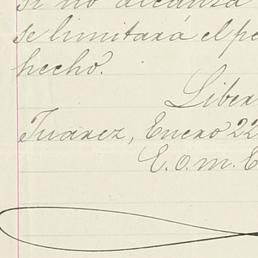 si no alcanza
se limitará el pe
hecho.
Liber
Juarez, Enero 22
E.O.M. E